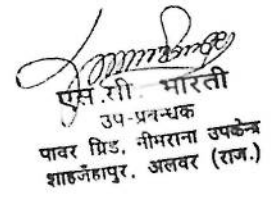 एस.सी. भारती
उप-प्रबन्धक
पावर ग्रिड, नीमराना उपकेन्द्र
शाहजँहापुर, अलवर (राज.)